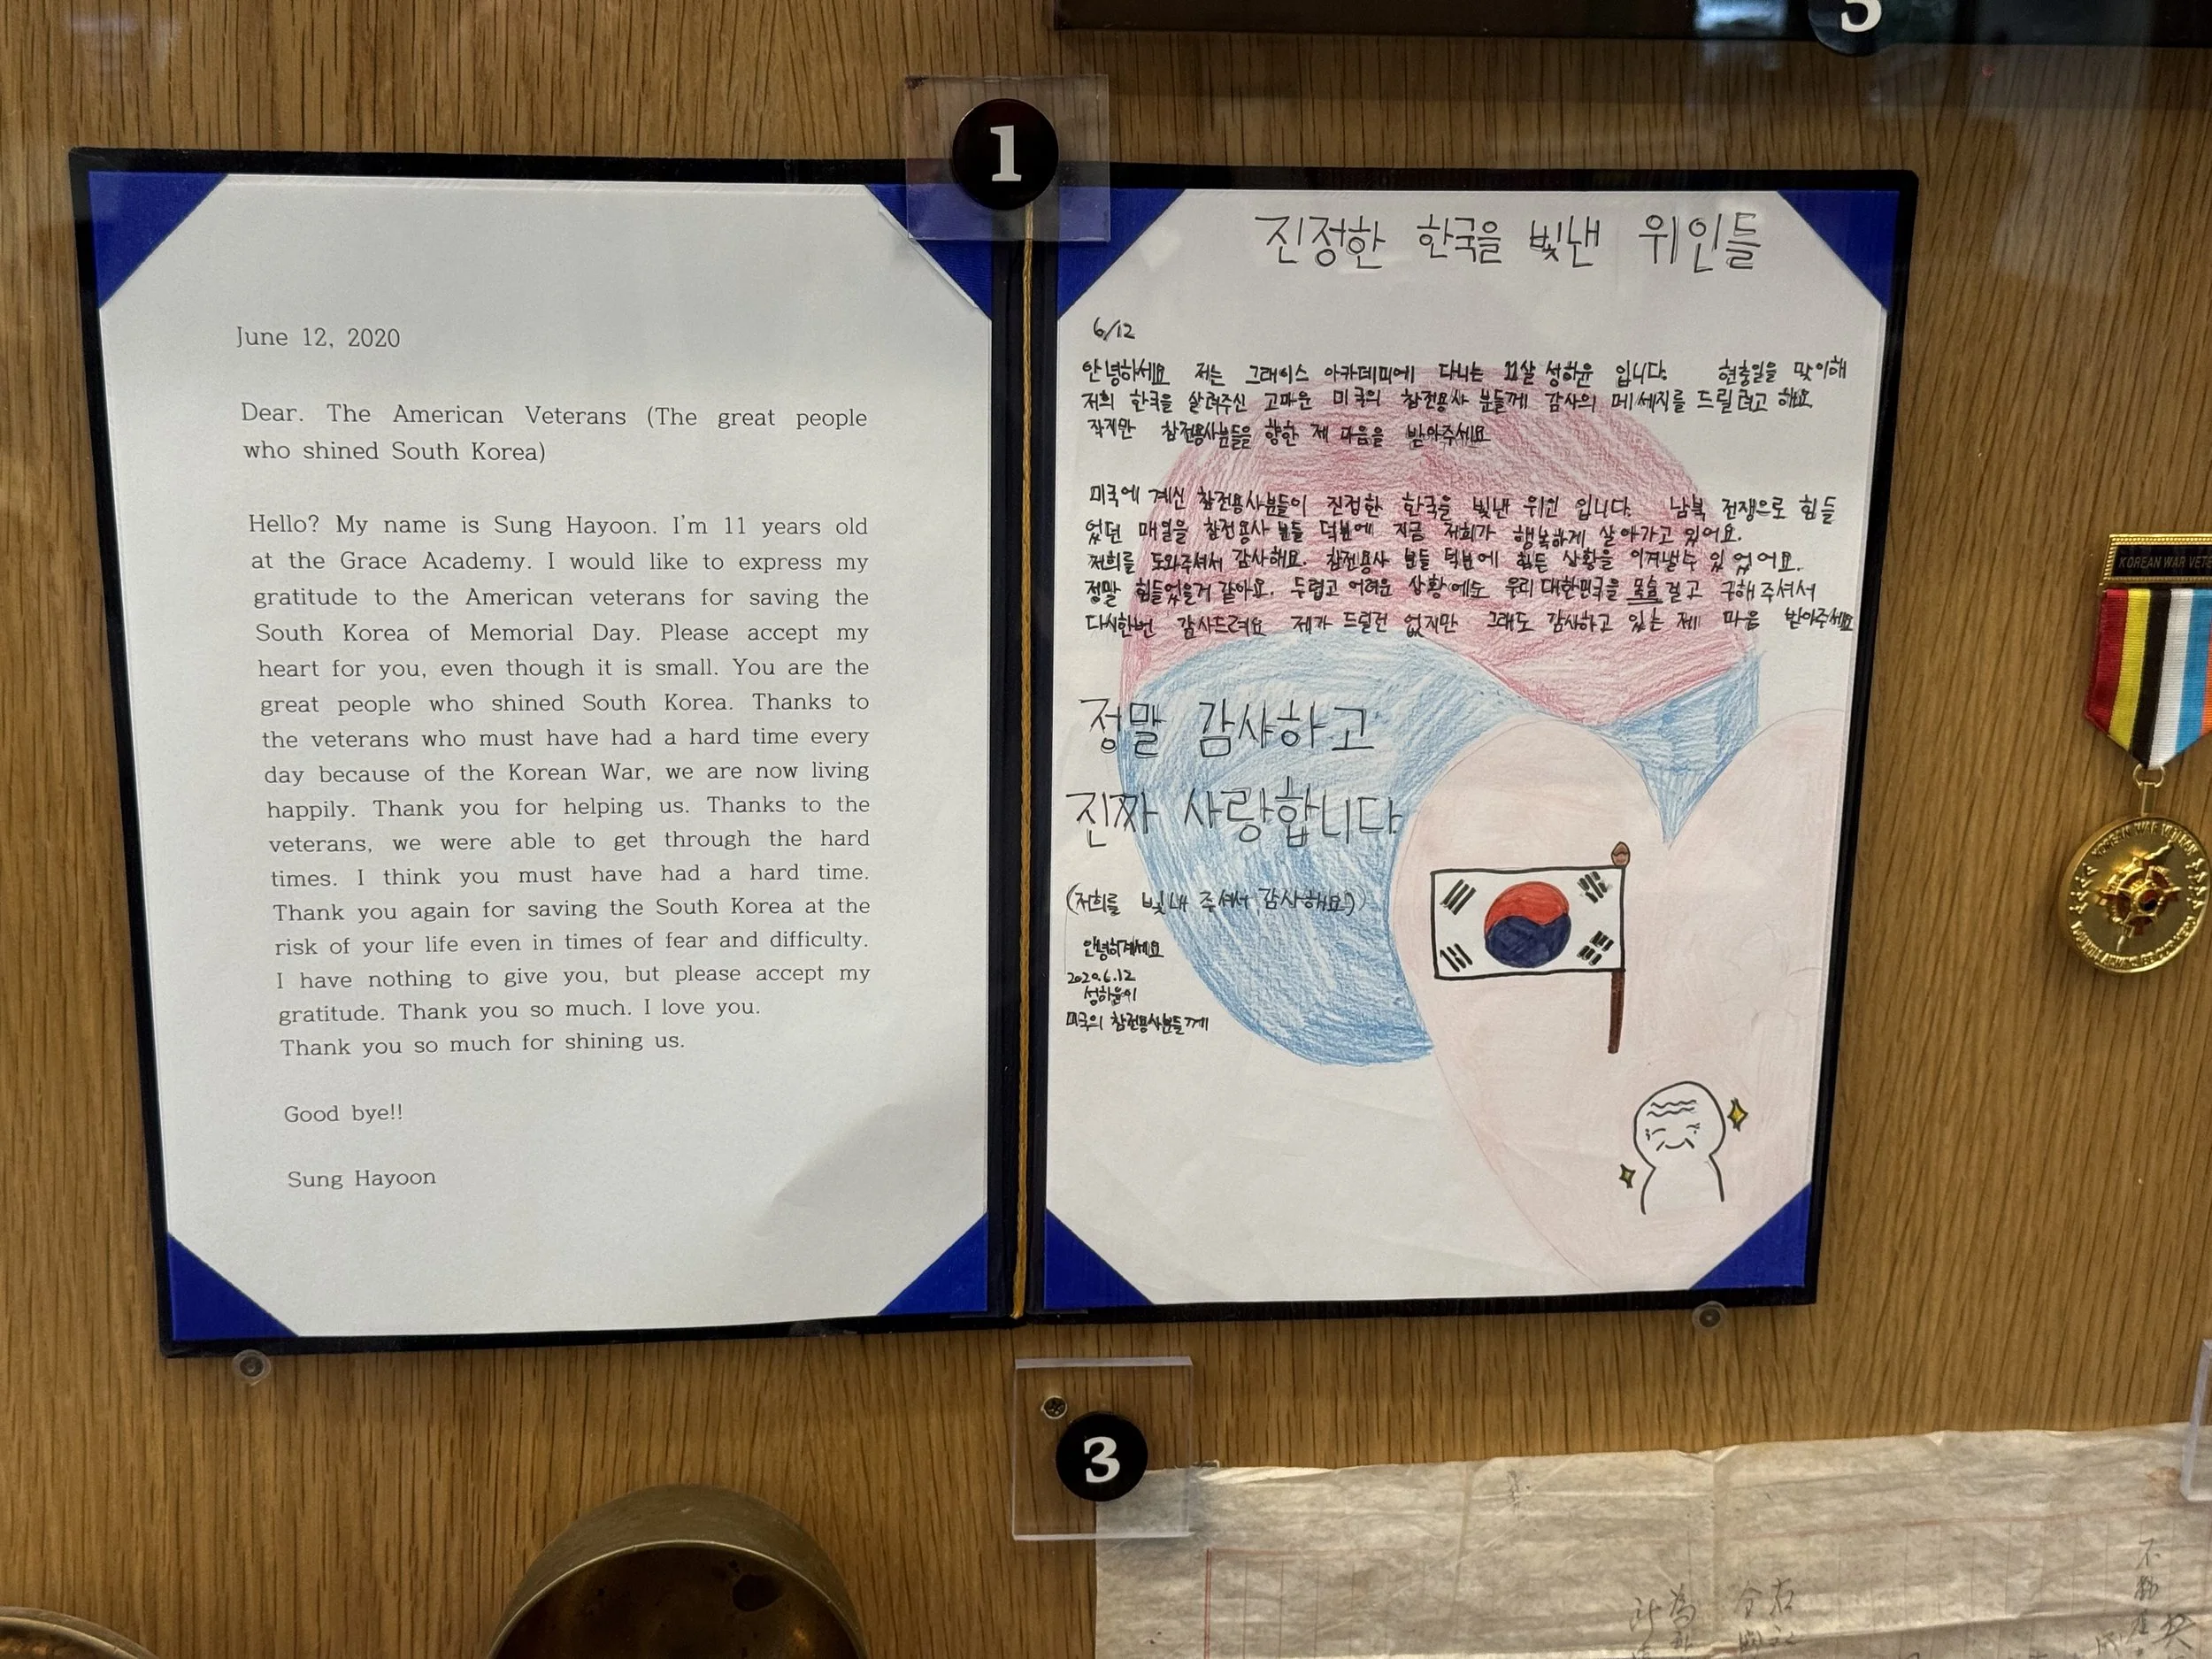 5
1
June 12, 2020
Dear. The American Veterans (The great people
who shined South Korea)
Hello? My name is Sung Hayoon. I'm 11 years old
at the Grace Academy. I would like to express my
gratitude to the American veterans for saving the
South Korea of Memorial Day. Please accept my
heart for you, even though it is small. You are the
great people who shined South Korea. Thanks to
the veterans who must have had a hard time every
day because of the Korean War, we are now living
happily. Thank you for helping us. Thanks to the
veterans, we were able to get through the hard
times. I think you must have had a hard time.
Thank you again for saving the South Korea at the
risk of your life even in times of fear and difficulty.
I have nothing to give you, but please accept my
gratitude. Thank you so much. I love you.
Thank you so much for shining us.
Good bye!!
Sung Hayoon
진정한 한국을 빛낸 위인들
6/12
안녕하세요 저는 그래이스 아카데미에 다니는 11살 성하윤 입니다. 현충일을 맞이해
저희 한국을 살려주신 고마운 미국의 참전용사 분들께 감사의 메세지를 드릴려고 해요
작지만 참전용사분들을 향한 제 마음을 받아주세요
미국에 계신 참전용사분들이 진정한 한국을 빛낸 위인 입니다. 남북 전쟁으로 힘들
었던 매일을 참전용사 분들 덕분에 지금 저희가 행복하게 살아가고 있어요.
저희를 도와주셔서 감사해요. 참전용사 분들 덕분에 힘든 상황을 이겨낼수 있었어요.
정말 힘들었을거 같아요. 두렵고 어려운 상황에도 우리 대한민국을 걸고 구해주셔서
다시한번 감사드려요 제가 드릴건 없지만 그래도 감사하고 있는 제 마음 받아주세요
정말 감사하고
진짜 사랑합니다
(저희를 빛내 주셔서 감사해요!)
안녕히계세요
2020.6.12
성하윤이
미국의 참전용사분들께
KOREAN WAR VETE
KOREAN WAR VETERAN
3